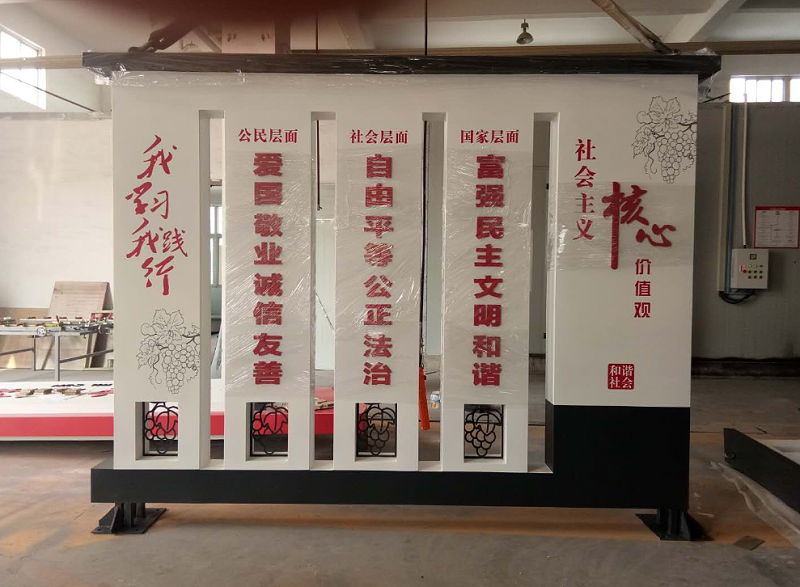 我
学习
我践
行
公民层面
爱国敬业诚信友善
社会层面
自由平等公正法治
国家层面
富强民主文明和谐
社会主义
核心
价值观
和谐
社会